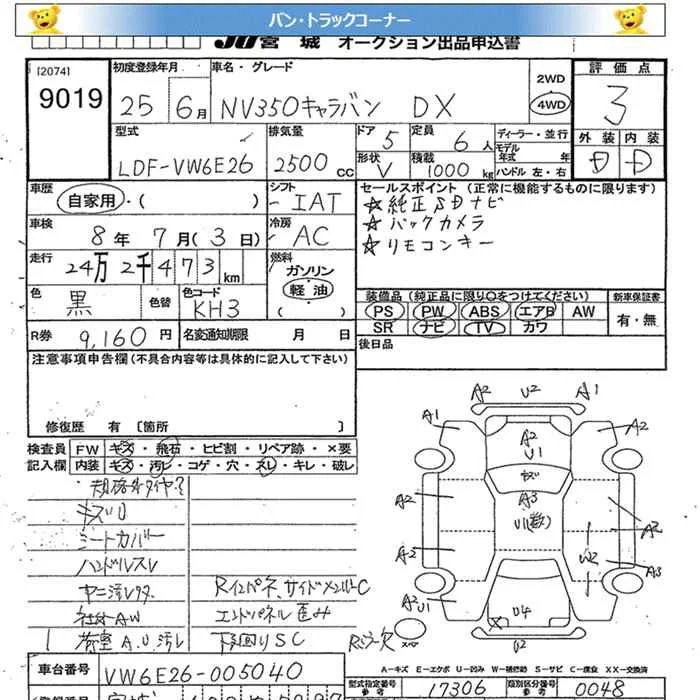 バン・トラックコーナー
JU宮城 オークション出品申込書
[2074]
9019
初度登録年月
25 6月
車名・グレード
NV350キャラバン DX
2WD
4WD
評価点
3
外装 内装
D D
型式
LDF-VW6E26
排気量
2500cc
ドア 5
定員 6人
形状 V
積載 1000kg
ディーラー・並行
モデル年式 年
ハンドル 左・右
車歴
自家用・( )
シフト
IAT
車検
8年 7月(3日)
冷房
AC
走行
24万2千473km
燃料
ガソリン
軽・油
色
黒
色替
色コード
KH3
R券
9,160円
名変通知期限 月 日
セールスポイント(正常に機能するものに限ります)
☆純正SDナビ
☆バックカメラ
☆リモコンキー
装備品(純正品に限り○をつけてください)
新車保証書
PS PW ABS エアB AW
SR ナビ TV カワ
有・無
後日品
注意事項申告欄(不具合内容等は具体的に記入して下さい)
修復歴 有 〔箇所 〕
検査員記入欄
FW キズ・飛石・ヒビ割・リペア跡・×要
内装 キズ・汚レ・コゲ・穴・スレ・キレ・破レ
規格外タイヤ
キズU
シートカバー
ハンドルスレ
ヤニ汚レタ
社外AW
荷室A.U.汚レ
RインパネサイドメンバーC
エンドパネル歪み
下廻りSC
A2 U2 A1
A1 A2
A2 U1
キズ
A2 A3 A2
U1(数)
A2 W2 A3
A2 U1 U4
X
U2
スペア
A-キズ E-エクボ U-凹み W-補修跡 S-サビ C-腐食 XX-交換済
車台番号
VW6E26-005040
型式指定番号 参考
17306
類別区分番号 参考
0048